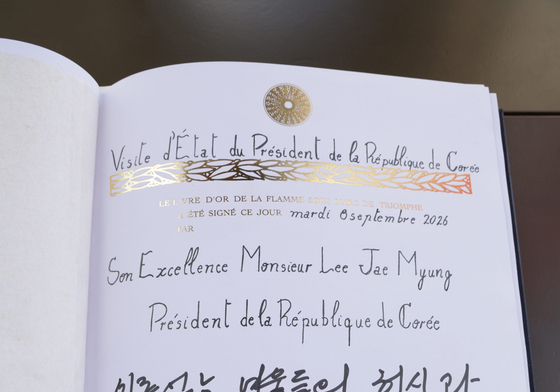 Visite d'État du Président de la République de Corée
LE LIVRE D'OR DE LA FLAMME SOUS L'ARC DE TRIOMPHE
A ÉTÉ SIGNÉ CE JOUR mardi 8 septembre 2026
PAR
Son Excellence Monsieur Lee Jae Myung
Président de la République de Corée